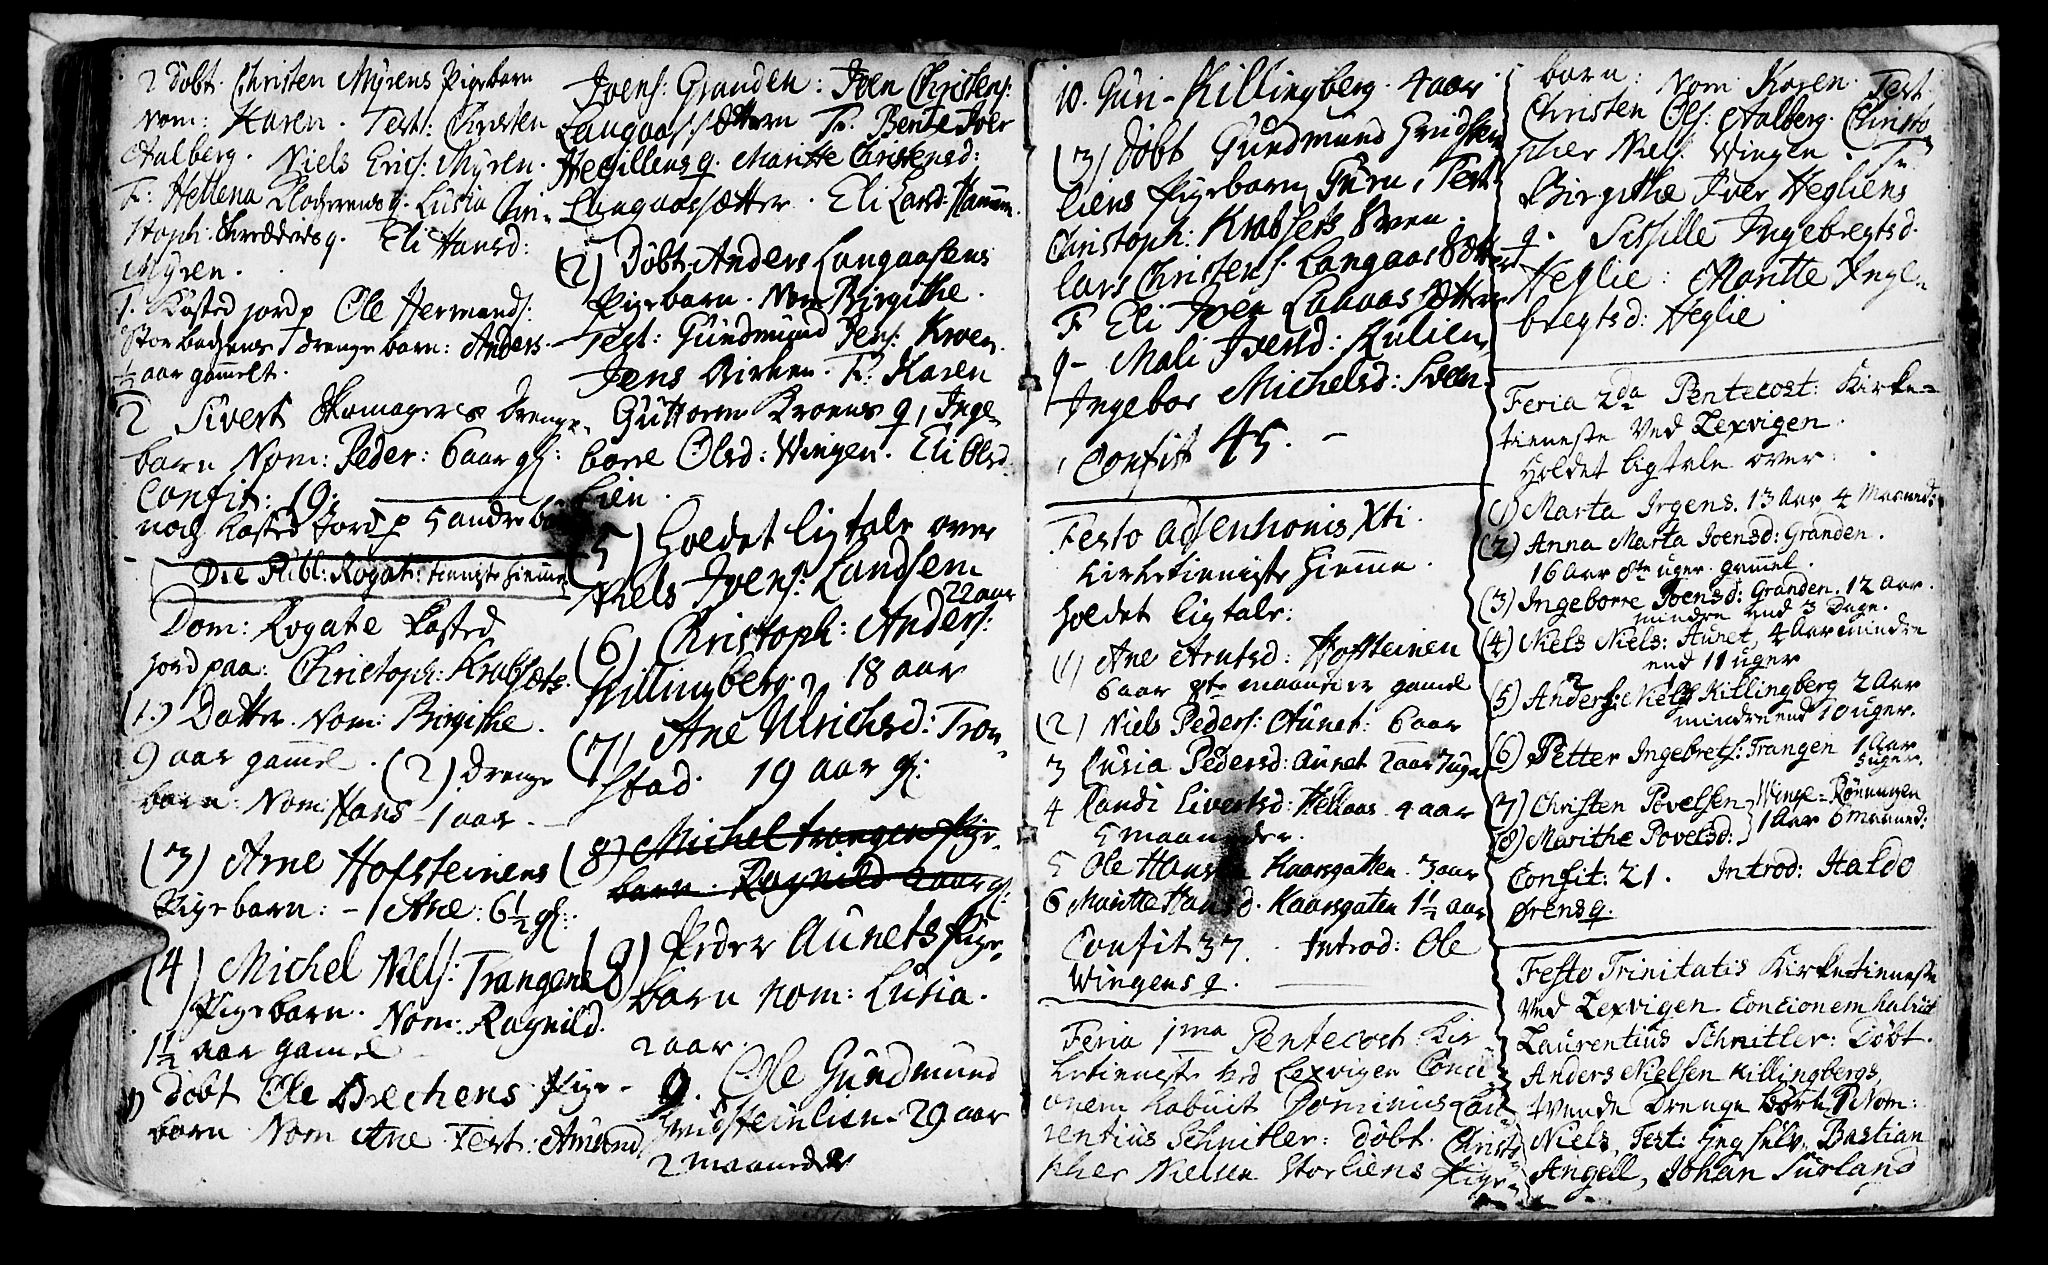 2 döbt. Christen Myrens Pigebarn
Nom: Karen. Test: Christen
Aalberg. Niels Erics: Myren.
F: Hellena Klocherens q. Lusia Chri-
stoph: Skrædders q. Eli Hansd:
Myren.
1. Kasted jord p Ole Hermands:
drenge barn: Anders.
½ aar gamelt.
2 Sivert Skomagers Drenge-
barn Nom: Peder: 6 aar gl:
Confit: 19:
nok kasted Jord p 5 andre
Die Publ: Rogat: tieniste hiemme
Dom: Rogate kasted
jord paa: Christoph: Krabsæts
(1.) Datter. Nom: Birgithe.
9 aar gammel. (2) Drenge
barn: Nom: Hans 1 aar.
(3) Arne Hofsteinens
Pigebarn: - Ane: 6½ gl:
(4) Michel Niels: Trangens
Pigebarn. Nom: Ragnild.
1½ aar gamel
1) Döbt Ole Brechens Pige-
barn Nom Ane Test: Amund
Joens: Granden: Joen Christens:
Langaassættern F. Bente Iver
Hegillens q. Maritte Christensd:
Langaassætter. Eli Larsd: Hamm.
(2) Döbt Anders Langaasens
Pigebarn. Nom Birgithe.
Test: Gundmund Jens: Kroen
Jens Birken. F: Karen
Guttorm Kroens q, Inge-
borre Olsd: Wingen. Eli Olsd:
Lien.
(5) Holdet ligtale over
Niels Joens: Landsem
22 aar
(6) Christoph: Anders:
Killingberg. 18 aar
(7) Ane Ulrichsd: Tron-
stad. 19 aar gl:
(8) Michel trangens Pige-
barn: Ragnild 2 aar gl:
(8) Peder Aunets Pige-
barn nom: Lusia.
2 aar.
9. Ole Gundmund
Gridsteinlien. 29 aar
2 maaneder
10. Guri Killingberg. 4 aar
(3) Döbt Gundmund Gridsten
liens Pigebarn Guru, Test:
Christoph: Krabsets Sven.
Lars Christens. Langaas Sætter
F Eli Joen Langaas sætter
q- Mali Iversd: Rulien
Ingebor Michelsd: Sven.
Confit 45. -
Festo adsentionis Xti.
Kirketieniste hiemme.
Holdet ligtale:
(1) Ane Arntsd: Hofsteinen
6 aar 8te maaneder gamel
(2) Niels Peders: Aunet: 6 aar
3 Lusia Pedersd: Aunet 2 aar 7 uger
4 Randi Sivertsd: Hellaas 4 aar
5 maaneder.
5 Ole Hans: Kaarsgatten. 3 aar
6 Maritte Hansd. Kaarsgaten 1½ aar
Confit 37. Introd: Ole
Wingens q.
Feria 1ma Pentecost Kir-
ketieniste ved Lexvigen Conci-
onem habuit Dominus Lau-
rentius Schnitler: döbt. Christo
pher Nielsen Storliens Pige-
barn: Nom Karen. Test
Christen Ols: Aalberg. Christo
pher Niels: Wingen. F
Birgithe Iver Hegliens
q. Sitsille Ingebregtsd.
Heglie: Maritte Inge-
bregtsd: Heglie
Feria 2da Pentecost: Kirke-
tieneste Ved Lexvigen.
Holdet ligtale over:
(1) Marta Irgens. 13 Aar 4 Maaned:
(2) Anna Marta Joensd: Granden.
16 aar 8te uger gammel.
(3) Ingeborre Joensd: Granden. 12 aar
mindre end 3 Dage.
(4) Niels Niels: Aunet, 4 Aar mindre
end 11 uger
(5) Anders: Niels Killingberg 2 Aar
mindre end 10 uger.
(6) Petter Ingebrets: Trangen 1 Aar
5 uger.
(7) Christen Povelsen Winge-Rönningen
(8) Marithe Povelsd: 1 Aar 6 Maaned:
Confit: 21. Introd: Haldo
Ørens q.
Festo Trinitatis Kirketieneste
Ved Lexvigen Concionem habuit
Laurentius Schnitler: Döbt.
Anders Nielsen Killingbergs
tvende Drenge börn 1 Nom:
Niels, Test: Sylv: Bastian
Angell, Johan Surland